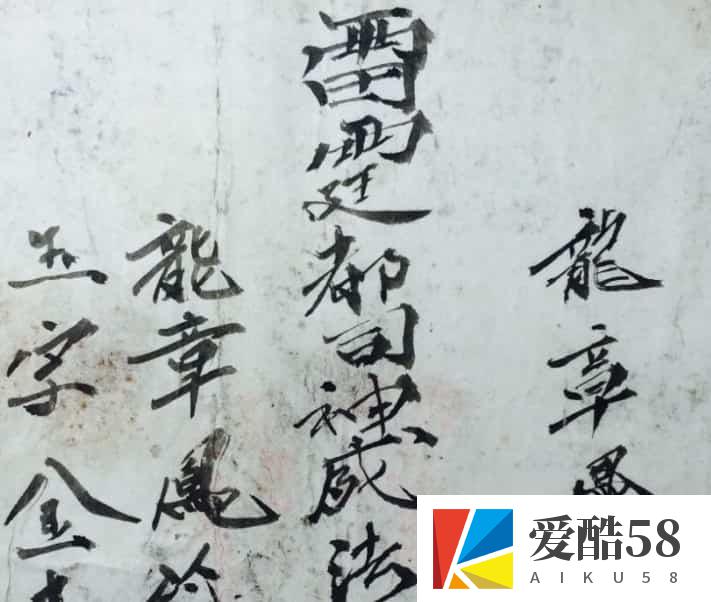 龍章鳳
雷霆都司神威法
龍章鳳
字金
爱酷58
AIKU58